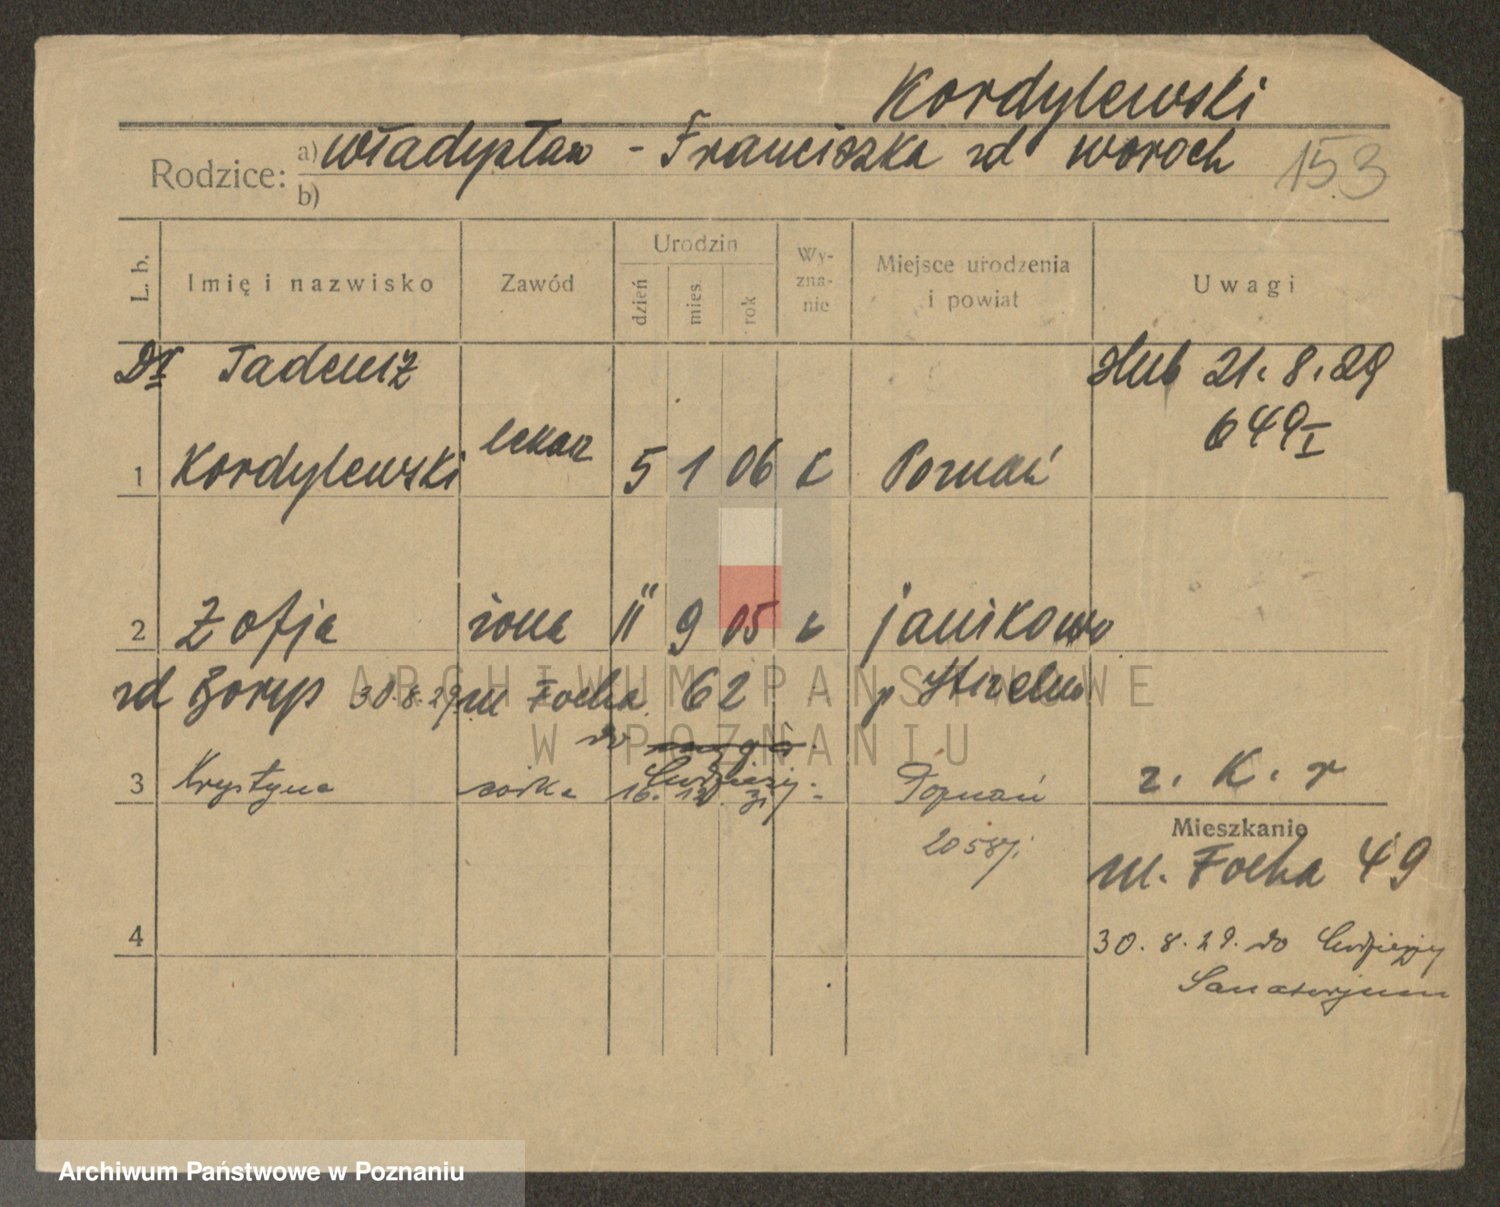 Kordylewski
Rodzice: a) Władysław - Franciszka zd Woroch 153
b)
L. b. Imię i nazwisko Zawód Urodzin dzień mies. rok Wy-zna-nie Miejsce urodzenia i powiat Uwagi
Dr Tadeusz Ślub 21. 8. 29
649 I
1 Kordylewski lekarz 5 1 06 k Poznań
2 Zofja żona 11 9 05 k Janikowo
zd Borys 30.8.29 ul Focha 62 p Strzelno
do
3 Krystyna córka 16. 12 31 Poznań z. K. r
2058/
Mieszkanie
ul. Focha 49
4 30. 8. 29. do
Sanatorjum
ARCHIWUM PAŃSTWOWE
W POZNANIU
Archiwum Państwowe w Poznaniu